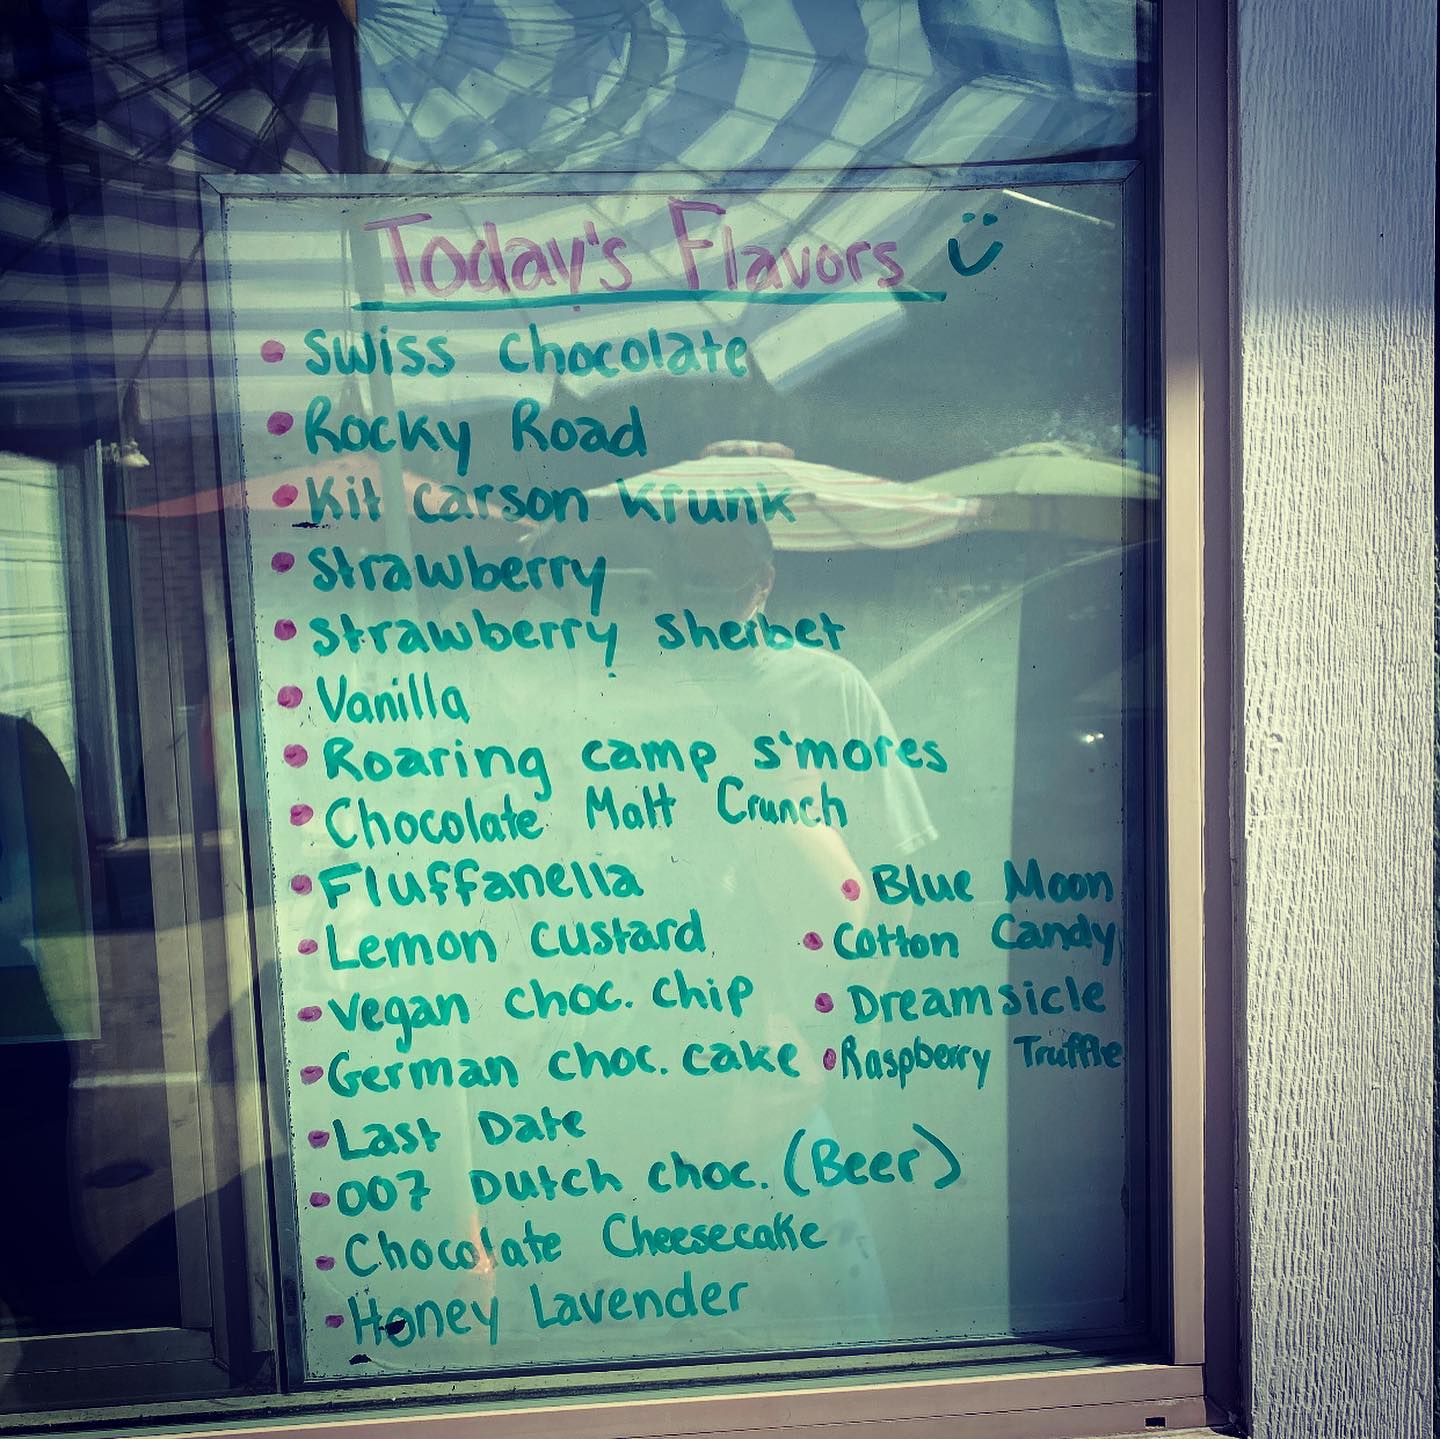 Today's Flavors
Swiss Chocolate
Rocky Road
Kit Carson Krunk
Strawberry
Strawberry Sherbet
Vanilla
Roaring camp s'mores
Chocolate Malt Crunch
Fluffanella
Lemon Custard
Vegan choc. chip
German choc. cake
Last Date
007 Dutch choc. (Beer)
Chocolate Cheesecake
Honey Lavender
Blue Moon
Cotton Candy
Dreamsicle
Raspberry Truffle